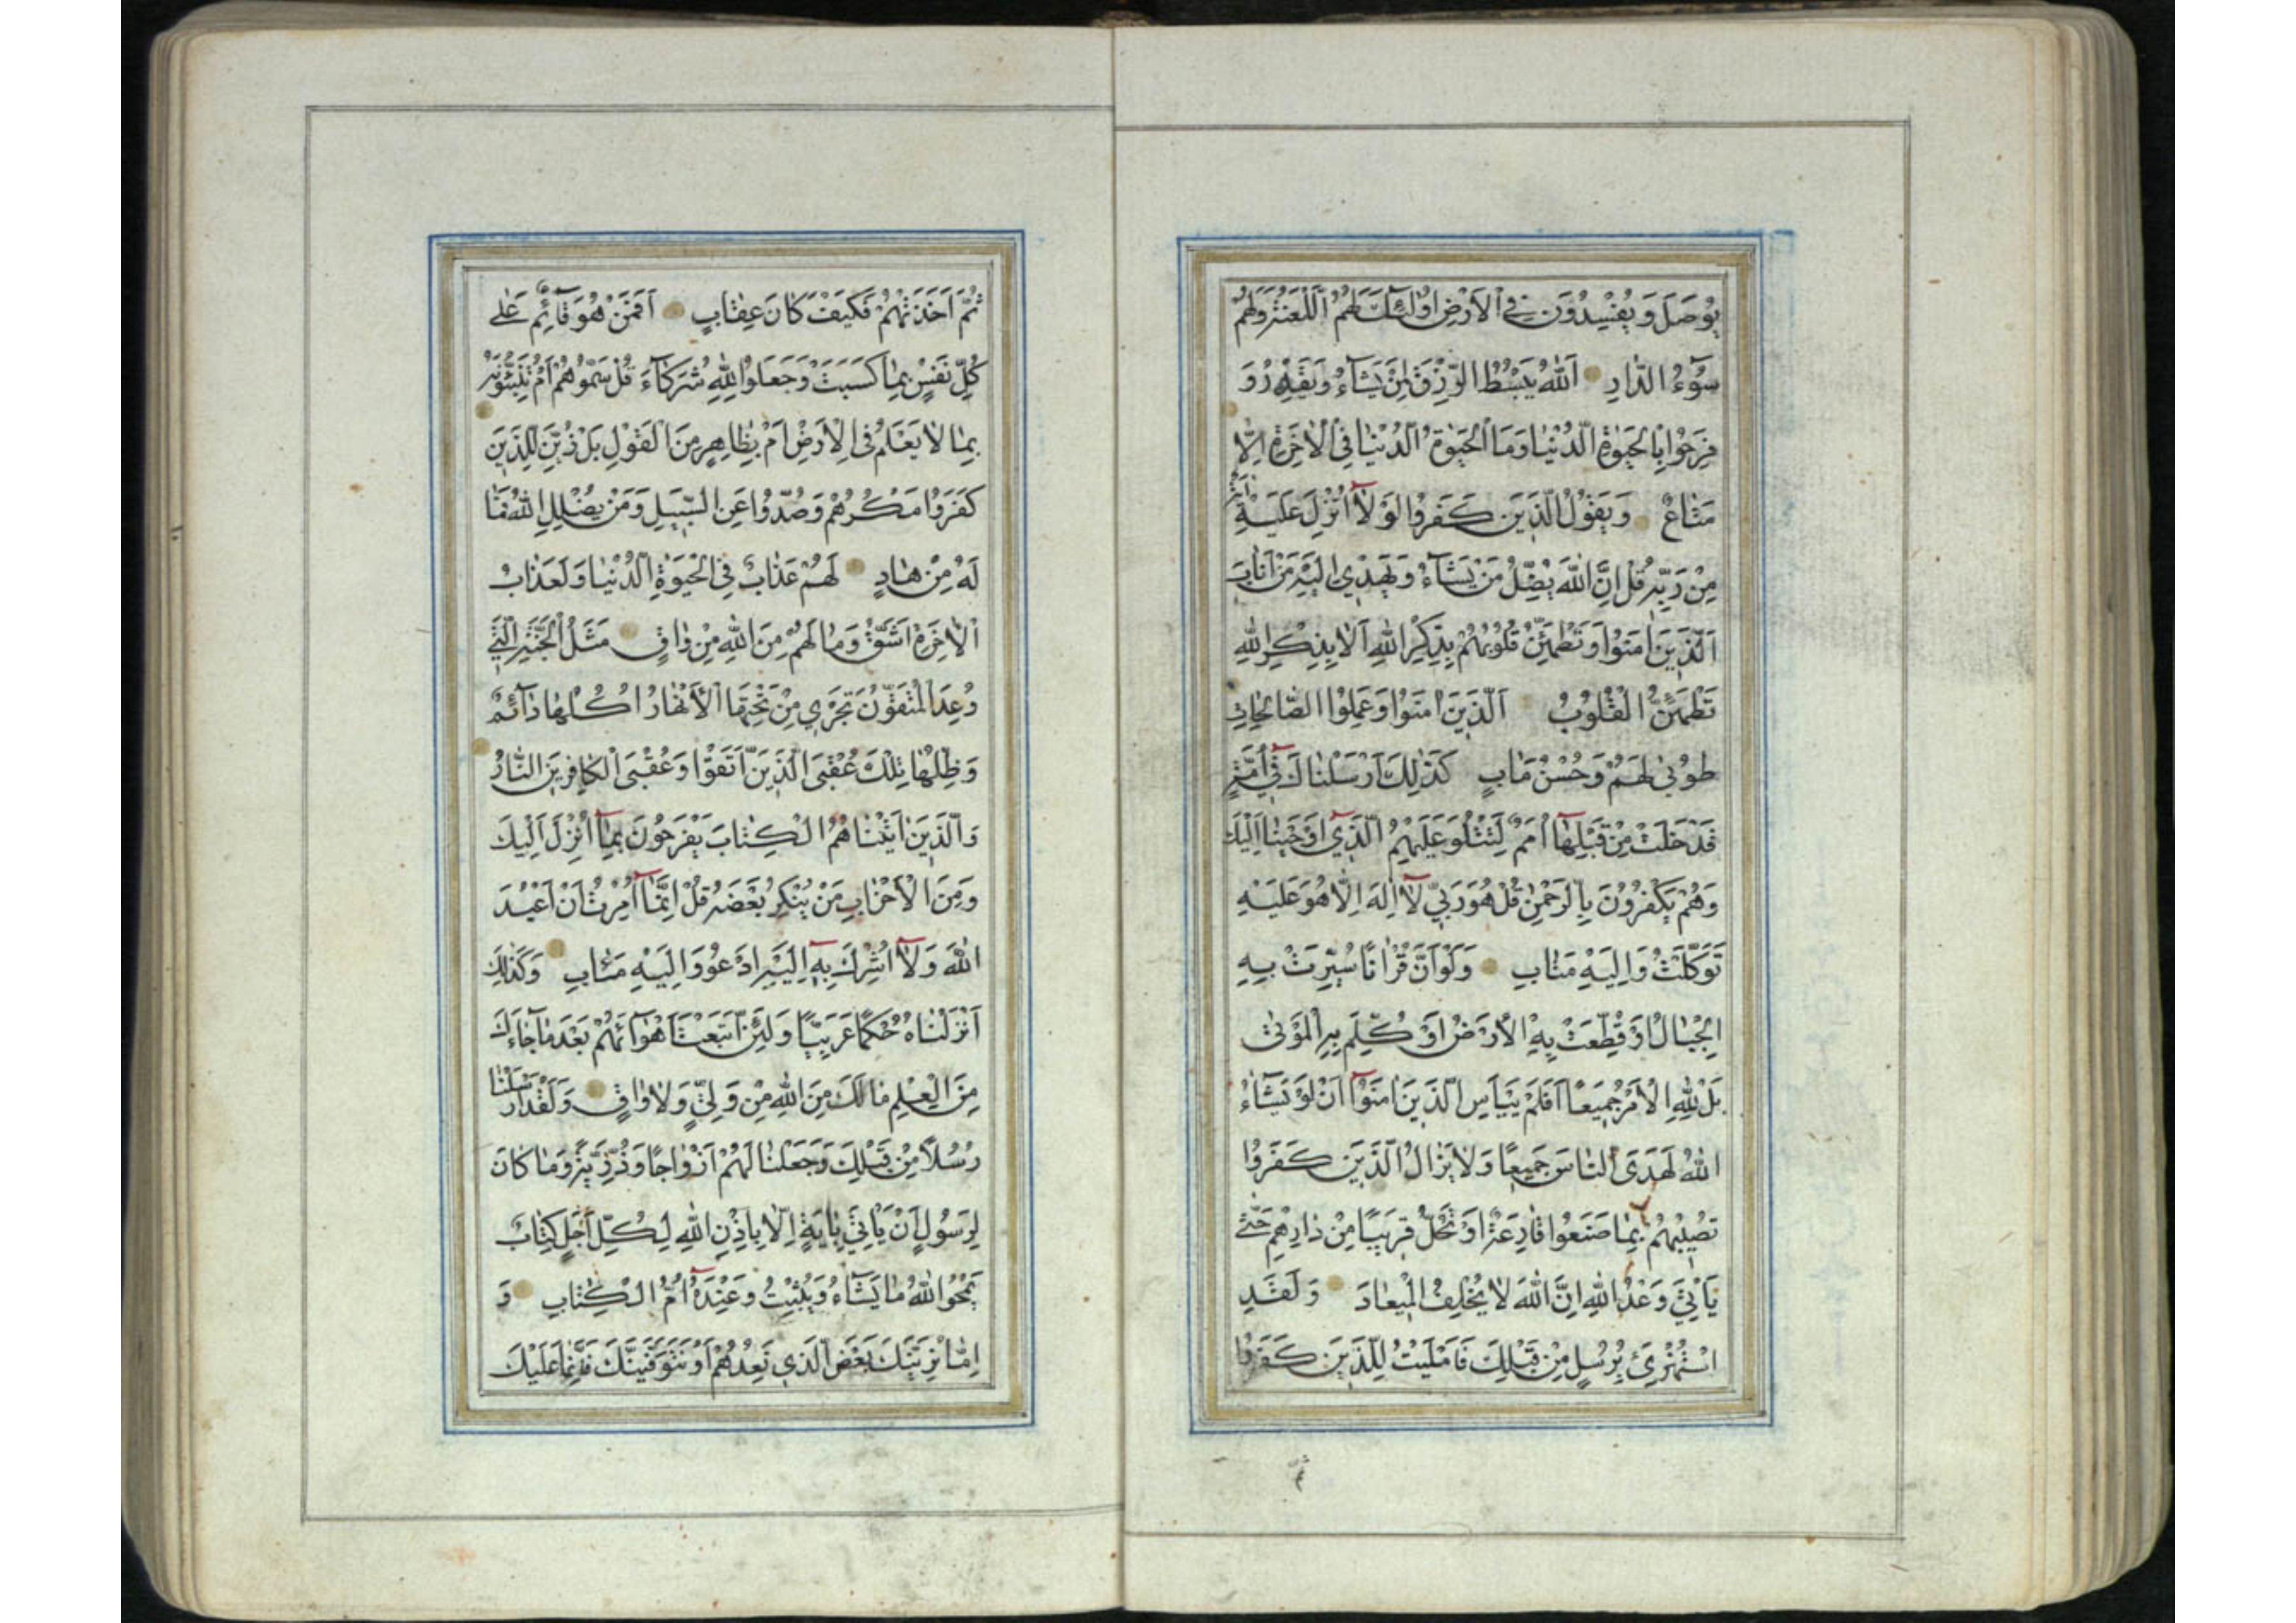 يُوصَلَ وَيُفْسِدُونَ فِي الْاَرْضِ اُولٰئِكَ لَهُمُ اللَّعْنَةُ وَلَهُمْ
سُوٓءُ الدَّارِ اَللّٰهُ يَبْسُطُ الرِّزْقَ لِمَنْ يَشَآءُ وَيَقْدِرُ وَ
فَرِحُوا بِالْحَيٰوةِ الدُّنْيَا وَمَا الْحَيٰوةُ الدُّنْيَا فِي الْاٰخِرَةِ اِلَّا
مَتَاعٌ وَيَقُولُ الَّذِينَ كَفَرُوا لَوْلَآ اُنْزِلَ عَلَيْهِ اٰيَةٌ
مِنْ رَبِّهِ قُلْ اِنَّ اللّٰهَ يُضِلُّ مَنْ يَشَآءُ وَيَهْدِي اِلَيْهِ مَنْ اَنَابَ
اَلَّذِينَ اٰمَنُوا وَتَطْمَئِنُّ قُلُوبُهُمْ بِذِكْرِ اللّٰهِ اَلَا بِذِكْرِ اللّٰهِ
تَطْمَئِنُّ الْقُلُوبُ اَلَّذِينَ اٰمَنُوا وَعَمِلُوا الصَّالِحَاتِ
طُوبٰى لَهُمْ وَحُسْنُ مَاٰبٍ كَذٰلِكَ اَرْسَلْنَاكَ فِٓي اُمَّةٍ
قَدْ خَلَتْ مِنْ قَبْلِهَآ اُمَمٌ لِتَتْلُوَ عَلَيْهِمُ الَّذِٓي اَوْحَيْنَا اِلَيْكَ
وَهُمْ يَكْفُرُونَ بِالرَّحْمٰنِ قُلْ هُوَ رَبِّي لَآ اِلٰهَ اِلَّا هُوَ عَلَيْهِ
تَوَكَّلْتُ وَاِلَيْهِ مَتَابِ وَلَوْ اَنَّ قُرْاٰنًا سُيِّرَتْ بِهِ
الْجِبَالُ اَوْ قُطِّعَتْ بِهِ الْاَرْضُ اَوْ كُلِّمَ بِهِ الْمَوْتٰى
بَلْ لِلّٰهِ الْاَمْرُ جَمِيعًا اَفَلَمْ يَيْاَسِ الَّذِينَ اٰمَنُوٓا اَنْ لَوْ يَشَآءُ
اللّٰهُ لَهَدَى النَّاسَ جَمِيعًا وَلَا يَزَالُ الَّذِينَ كَفَرُوا
تُصِيبُهُمْ بِمَا صَنَعُوا قَارِعَةٌ اَوْ تَحُلُّ قَرِيبًا مِنْ دَارِهِمْ حَتّٰى
يَأْتِيَ وَعْدُ اللّٰهِ اِنَّ اللّٰهَ لَا يُخْلِفُ الْمِيعَادَ وَلَقَدِ
اسْتُهْزِئَ بِرُسُلٍ مِنْ قَبْلِكَ فَاَمْلَيْتُ لِلَّذِينَ كَفَرُوا
ثُمَّ
ثُمَّ اَخَذْتُهُمْ فَكَيْفَ كَانَ عِقَابِ اَفَمَنْ هُوَ قَآئِمٌ عَلٰى
كُلِّ نَفْسٍ بِمَا كَسَبَتْ وَجَعَلُوا لِلّٰهِ شُرَكَآءَ قُلْ سَمُّوهُمْ اَمْ تُنَبِّئُونَهُ
بِمَا لَا يَعْلَمُ فِي الْاَرْضِ اَمْ بِظَاهِرٍ مِنَ الْقَوْلِ بَلْ زُيِّنَ لِلَّذِينَ
كَفَرُوا مَكْرُهُمْ وَصُدُّوا عَنِ السَّبِيلِ وَمَنْ يُضْلِلِ اللّٰهُ فَمَا
لَهُ مِنْ هَادٍ لَهُمْ عَذَابٌ فِي الْحَيٰوةِ الدُّنْيَا وَلَعَذَابُ
الْاٰخِرَةِ اَشَقُّ وَمَا لَهُمْ مِنَ اللّٰهِ مِنْ وَاقٍ مَثَلُ الْجَنَّةِ الَّتِي
وُعِدَ الْمُتَّقُونَ تَجْرِي مِنْ تَحْتِهَا الْاَنْهَارُ اُكُلُهَا دَآئِمٌ
وَظِلُّهَا تِلْكَ عُقْبَى الَّذِينَ اتَّقَوْا وَعُقْبَى الْكَافِرِينَ النَّارُ
وَالَّذِينَ اٰتَيْنَاهُمُ الْكِتَابَ يَفْرَحُونَ بِمَآ اُنْزِلَ اِلَيْكَ
وَمِنَ الْاَحْزَابِ مَنْ يُنْكِرُ بَعْضَهُ قُلْ اِنَّمَآ اُمِرْتُ اَنْ اَعْبُدَ
اللّٰهَ وَلَآ اُشْرِكَ بِهِٓ اِلَيْهِ اَدْعُو وَاِلَيْهِ مَاٰبِ وَكَذٰلِكَ
اَنْزَلْنَاهُ حُكْمًا عَرَبِيًّا وَلَئِنِ اتَّبَعْتَ اَهْوَآئَهُمْ بَعْدَ مَا جَآءَكَ
مِنَ الْعِلْمِ مَا لَكَ مِنَ اللّٰهِ مِنْ وَلِيٍّ وَلَا وَاقٍ وَلَقَدْ اَرْسَلْنَا
رُسُلًا مِنْ قَبْلِكَ وَجَعَلْنَا لَهُمْ اَزْوَاجًا وَذُرِّيَّةً وَمَا كَانَ
لِرَسُولٍ اَنْ يَأْتِيَ بِاٰيَةٍ اِلَّا بِاِذْنِ اللّٰهِ لِكُلِّ اَجَلٍ كِتَابٌ
يَمْحُوا اللّٰهُ مَا يَشَآءُ وَيُثْبِتُ وَعِنْدَهُٓ اُمُّ الْكِتَابِ وَ
اِمَّا نُرِيَنَّكَ بَعْضَ الَّذِي نَعِدُهُمْ اَوْ نَتَوَفَّيَنَّكَ فَاِنَّمَا عَلَيْكَ